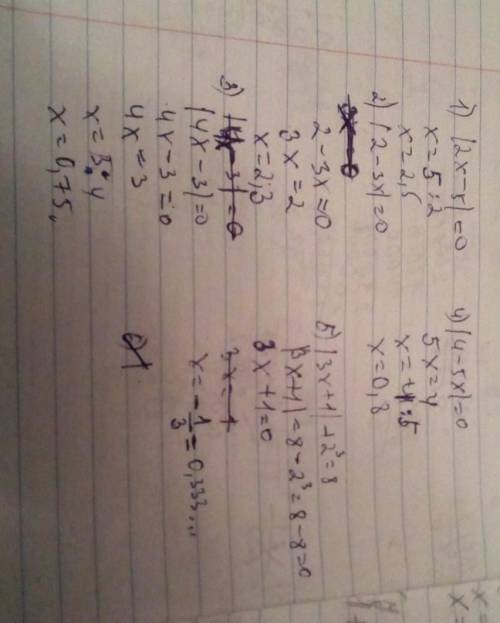 1) |2x-5|=0
x=5:2
x=2,5
2) |2-3x|=0
2-3x=0
3x=2
x=2:3
3) |4x-3|=0
|4x-3|=0
4x-3=0
4x=3
x=3:4
x=0,75
4) |4-5x|=0
5x=4
x=4:5
x=0,8
5) |3x+1|+2³=8
|3x+1|=8-2³=8-8=0
3x+1=0
3x=-1
x=-1/3=0,333...